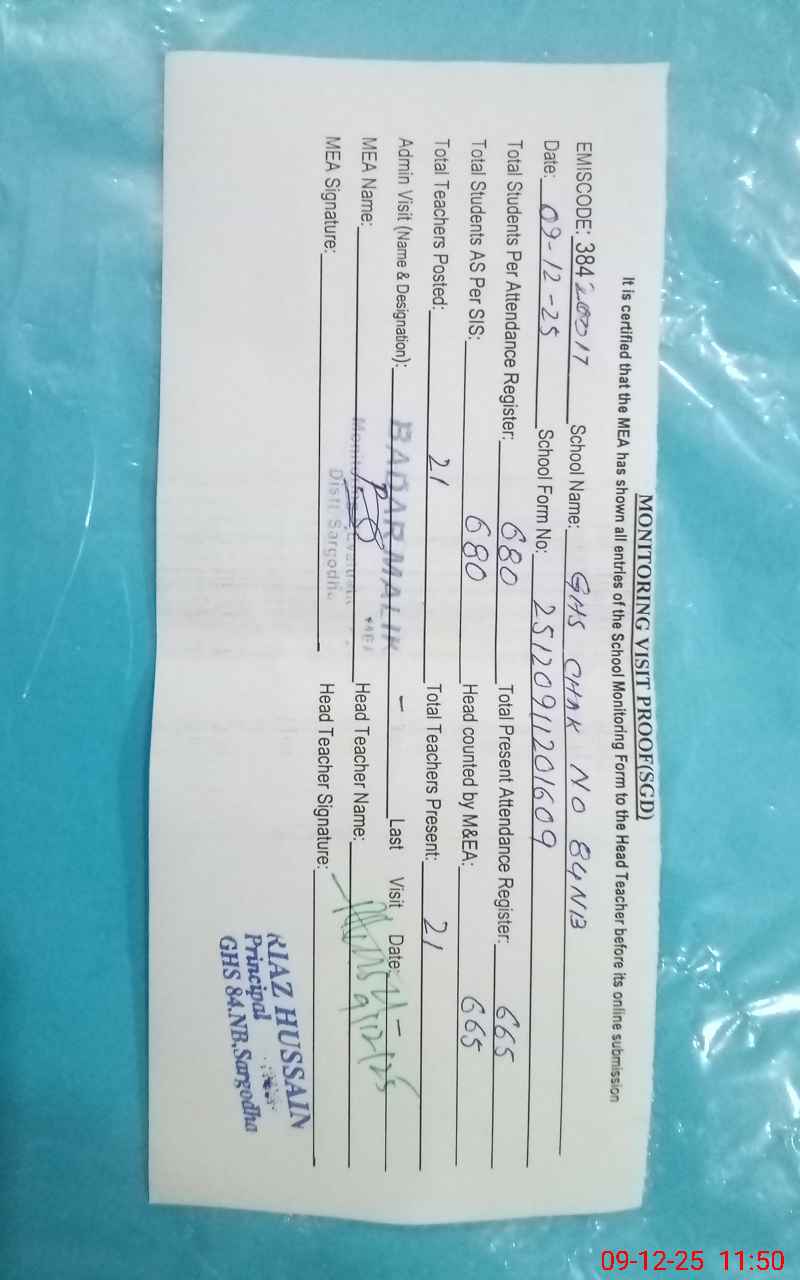 MONITORING VISIT PROOF(SGD)
It is certified that the MEA has shown all entries of the School Monitoring Form to the Head Teacher before its online submission
EMISCODE: 38420017 School Name: GHS CHAK NO 84NB
Date: 09-12-25 School Form No: 25120911201609
Total Students Per Attendance Register: 680 Total Present Attendance Register: 665
Total Students AS Per SIS: 680 Head counted by M&EA: 665
Total Teachers Posted: 21 Total Teachers Present: 21
Admin Visit (Name & Designation): - Last Visit Date: -
BADAR MALIK
MEA Name: Head Teacher Name:
9/12/25
MEA Signature: Head Teacher Signature:
Distt. Sargodha
RIAZ HUSSAIN
Principal
GHS 84.NB,Sargodha
09-12-25 11:50